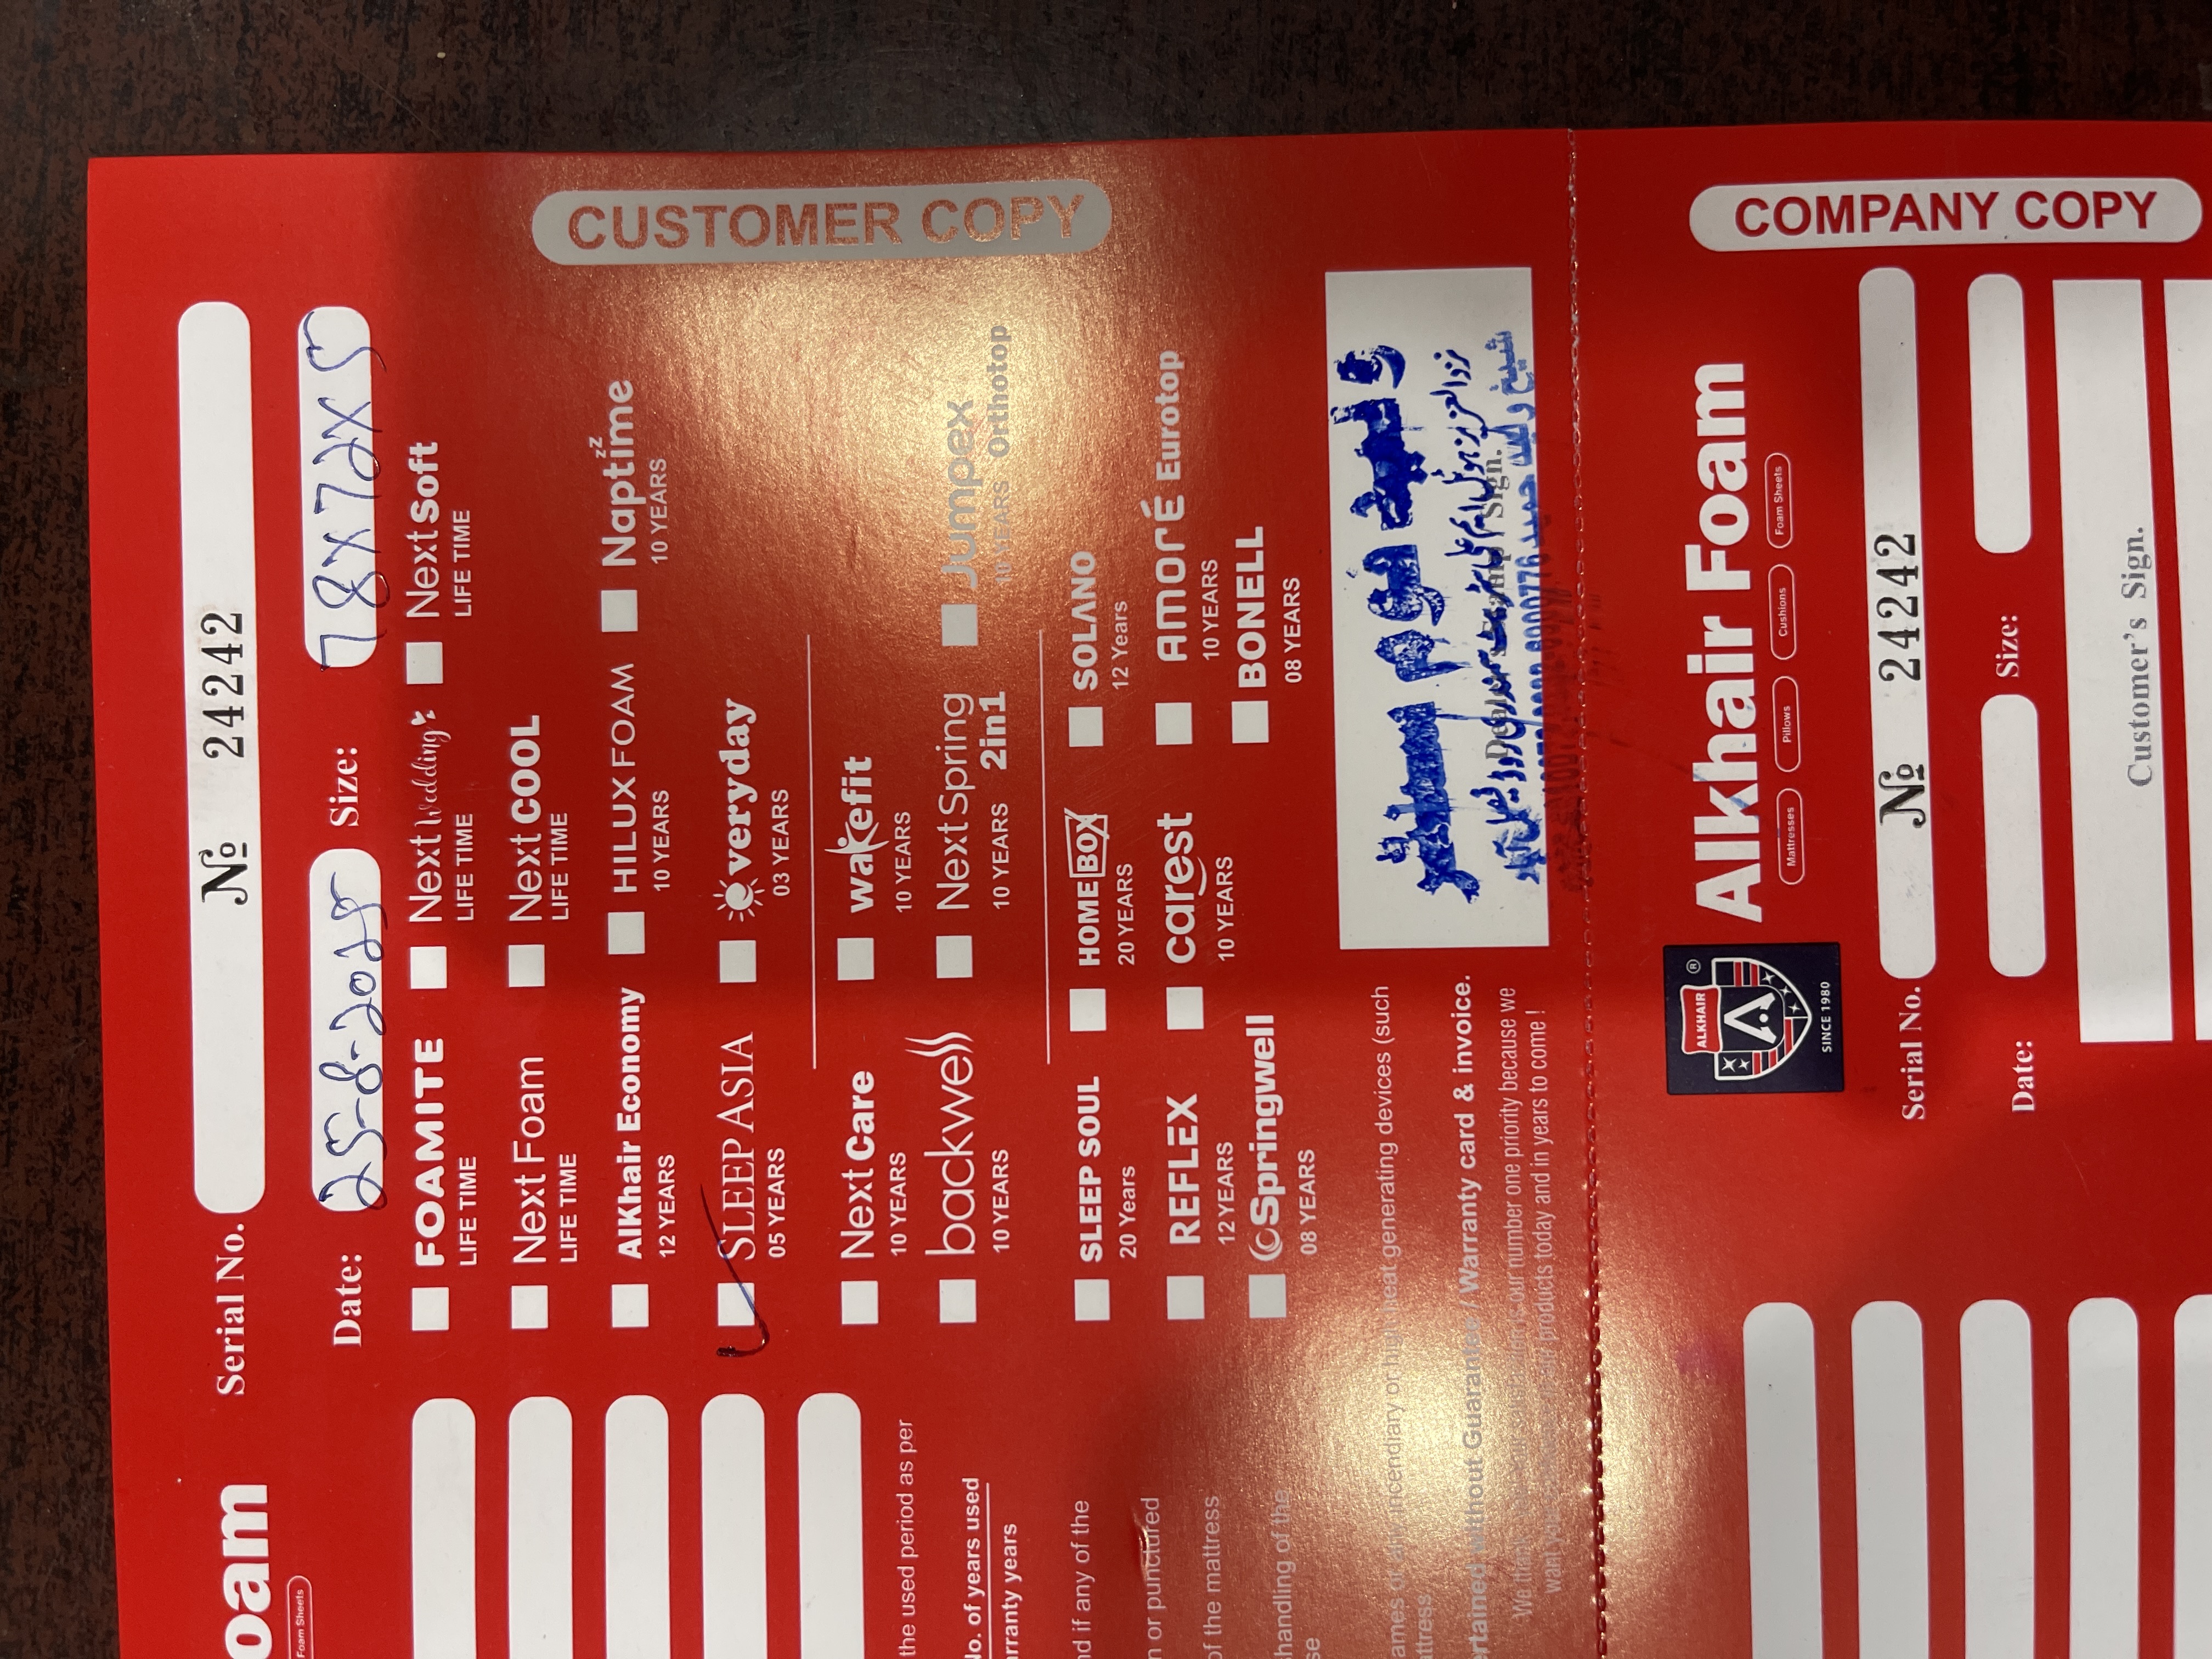 CUSTOMER COPY
oam
Foam Sheets
Serial No. № 24242
Date: 25-8-2025 Size: 78x72x5
FOAMITE
LIFE TIME
Next Wedding
LIFE TIME
Next Soft
LIFE TIME
Next Foam
LIFE TIME
Next COOL
LIFE TIME
AlKhair Economy
12 YEARS
HILUX FOAM
10 YEARS
Naptime zz
10 YEARS
SLEEP ASIA
05 YEARS
everyday
03 YEARS
Next Care
10 YEARS
wakefit
10 YEARS
backwell
10 YEARS
Next Spring
10 YEARS 2in1
Jumpex
10 YEARS Orthotop
SLEEP SOUL
20 Years
HOME BOX
20 YEARS
SOLANO
12 Years
REFLEX
12 YEARS
carest
10 YEARS
AMORÉ Eurotop
10 YEARS
Springwell
08 YEARS
BONELL
08 YEARS
the used period as per
No. of years used
arranty years
nd if any of the
n or punctured
of the mattress
handling of the
se
ames or any incendiary or high heat generating devices (such
attress.
ertained without Guarantee / Warranty card & invoice.
We thank you our number one priority because we
want you products today and in years to come !
Sign.
COMPANY COPY
ALKHAIR
SINCE 1980
Alkhair Foam
Mattresses Pillows Cushions Foam Sheets
Serial No. № 24242
Date: Size:
Customer's Sign.